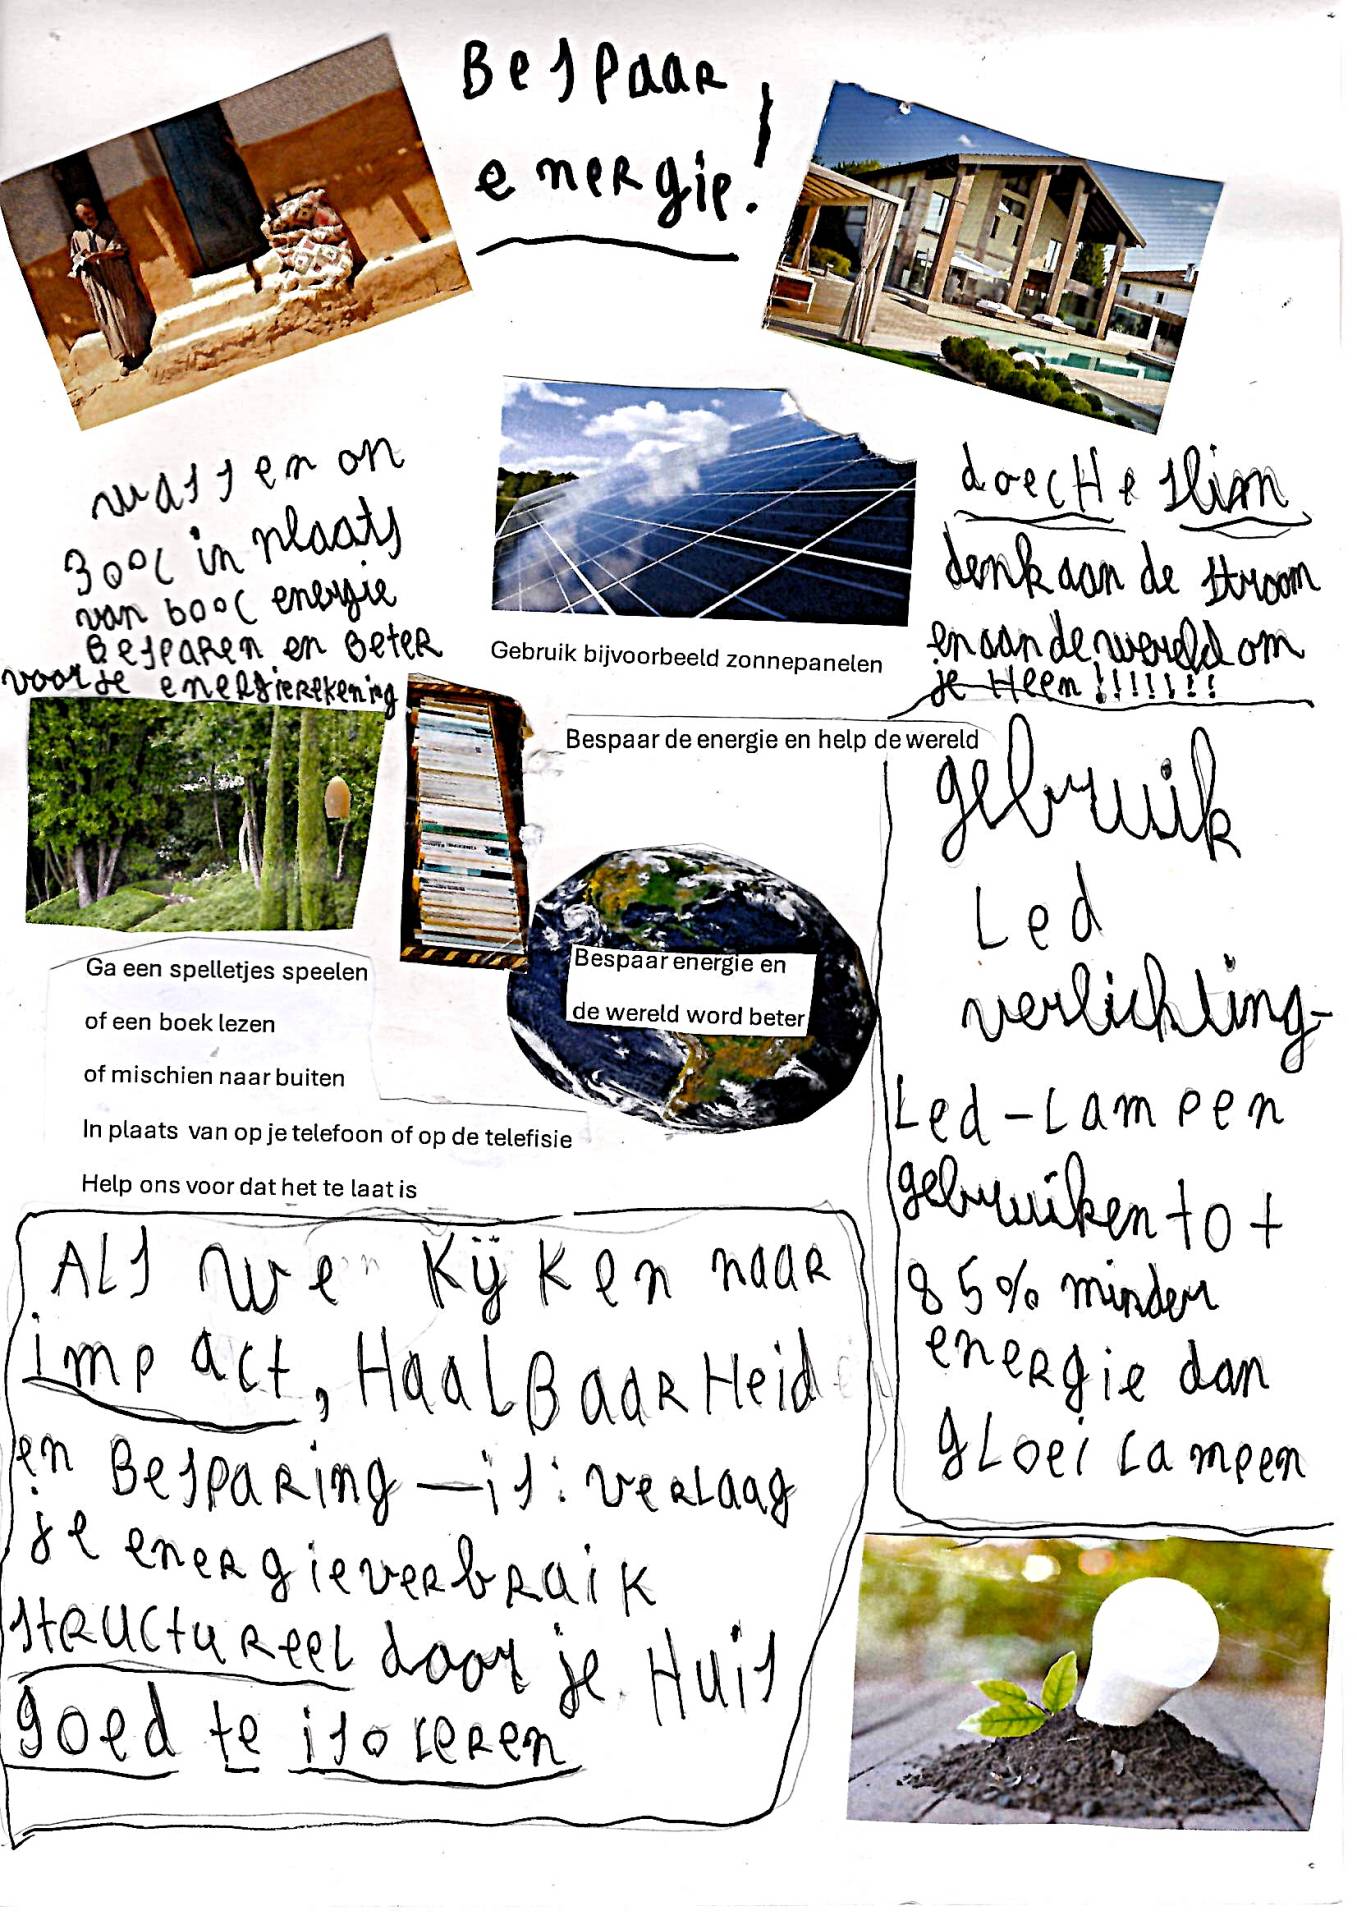 Bespaar
energie!
wassen on
30°C in plaats
van 60°C energie
Besparen en Beter
voor je energierekening
Gebruik bijvoorbeeld zonnepanelen
doeche slim
denk aan de stroom
en aan de wereld om
je Heen!!!!!!!
Bespaar de energie en help de wereld
Bespaar energie en
de wereld word beter
Ga een spelletjes speelen
of een boek lezen
of mischien naar buiten
In plaats van op je telefoon of op de telefisie
Help ons voor dat het te laat is
gebruik
Led
verlichting-
Led-Lampen
gebruiken tot
85% minder
energie dan
gloeilampen
Als we kijken naar
impact, Haalbaarheid
en Besparing - is: verlaag
je energieverbraik
structureel door je Huis
goed te isoleren